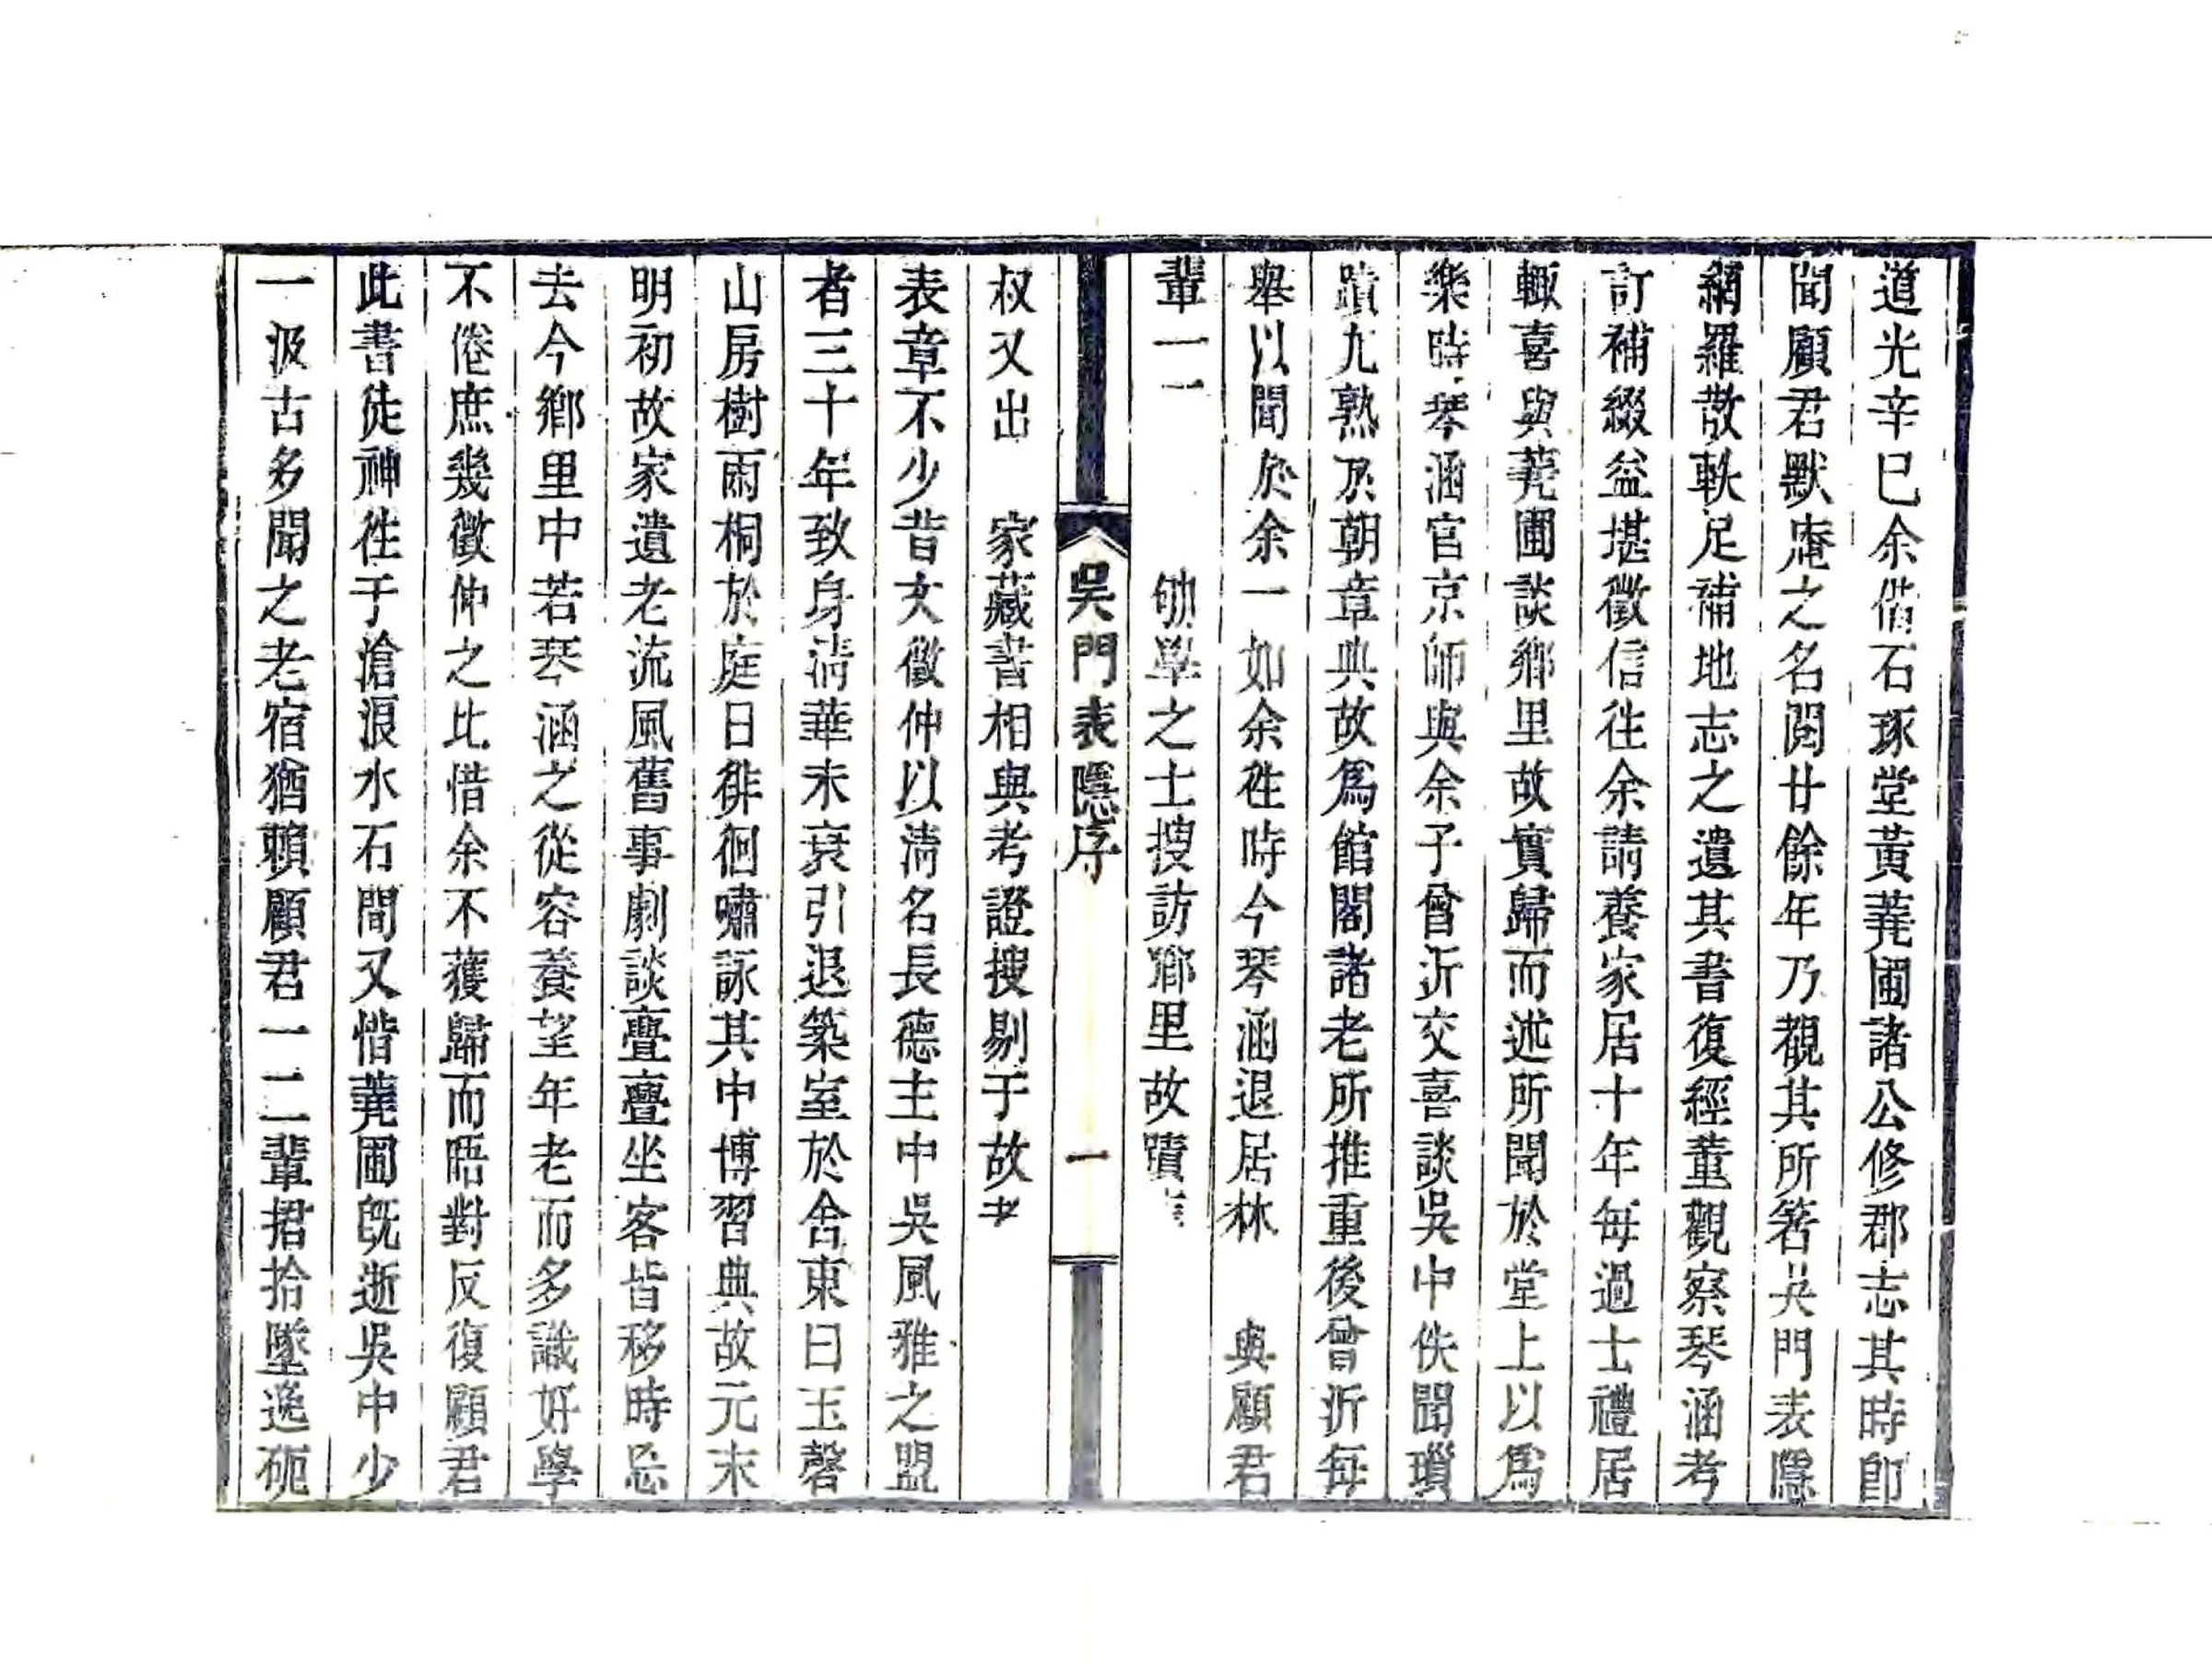 道光辛巳余偕石琢堂黃蕘圃諸公修郡志其時卽
聞顧君默庵之名閱廿餘年乃覩其所箸吳門表隱
網羅散軼足補地志之遺其書復經董觀察琴涵考
訂補綴益堪徵信往余請養家居十年每過士禮居
輒喜與蕘圃談鄉里故實歸而述所聞於堂上以爲
樂時琴涵官京師與余子曾沂交喜談吳中佚聞瑣
蹟尤熟於朝章典故爲館閣諸老所推重後曾沂每
舉以聞於余一如余往時今琴涵退居林 與顧君
輩一一 劬學之士搜訪鄉里故蹟
吳門表隱序 一
叔又出 家藏書相與考證搜剔于故
表章不少昔文徵仲以淸名長德主中吳風雅之盟
者三十年致身淸華未衰引退築室於舍東曰玉磬
山房樹兩桐於庭日徘徊嘯詠其中博習典故元末
明初故家遺老流風舊事劇談亹亹坐客皆移時忘
去今鄉里中若琴涵之從容養望年老而多識好學
不倦庶幾徵仲之比惜余不獲歸而晤對反復顧君
此書徒神往于滄浪水石間又惜蕘圃旣逝吳中少
一汲古多聞之老宿猶賴顧君一二輩捃拾墜逸砣